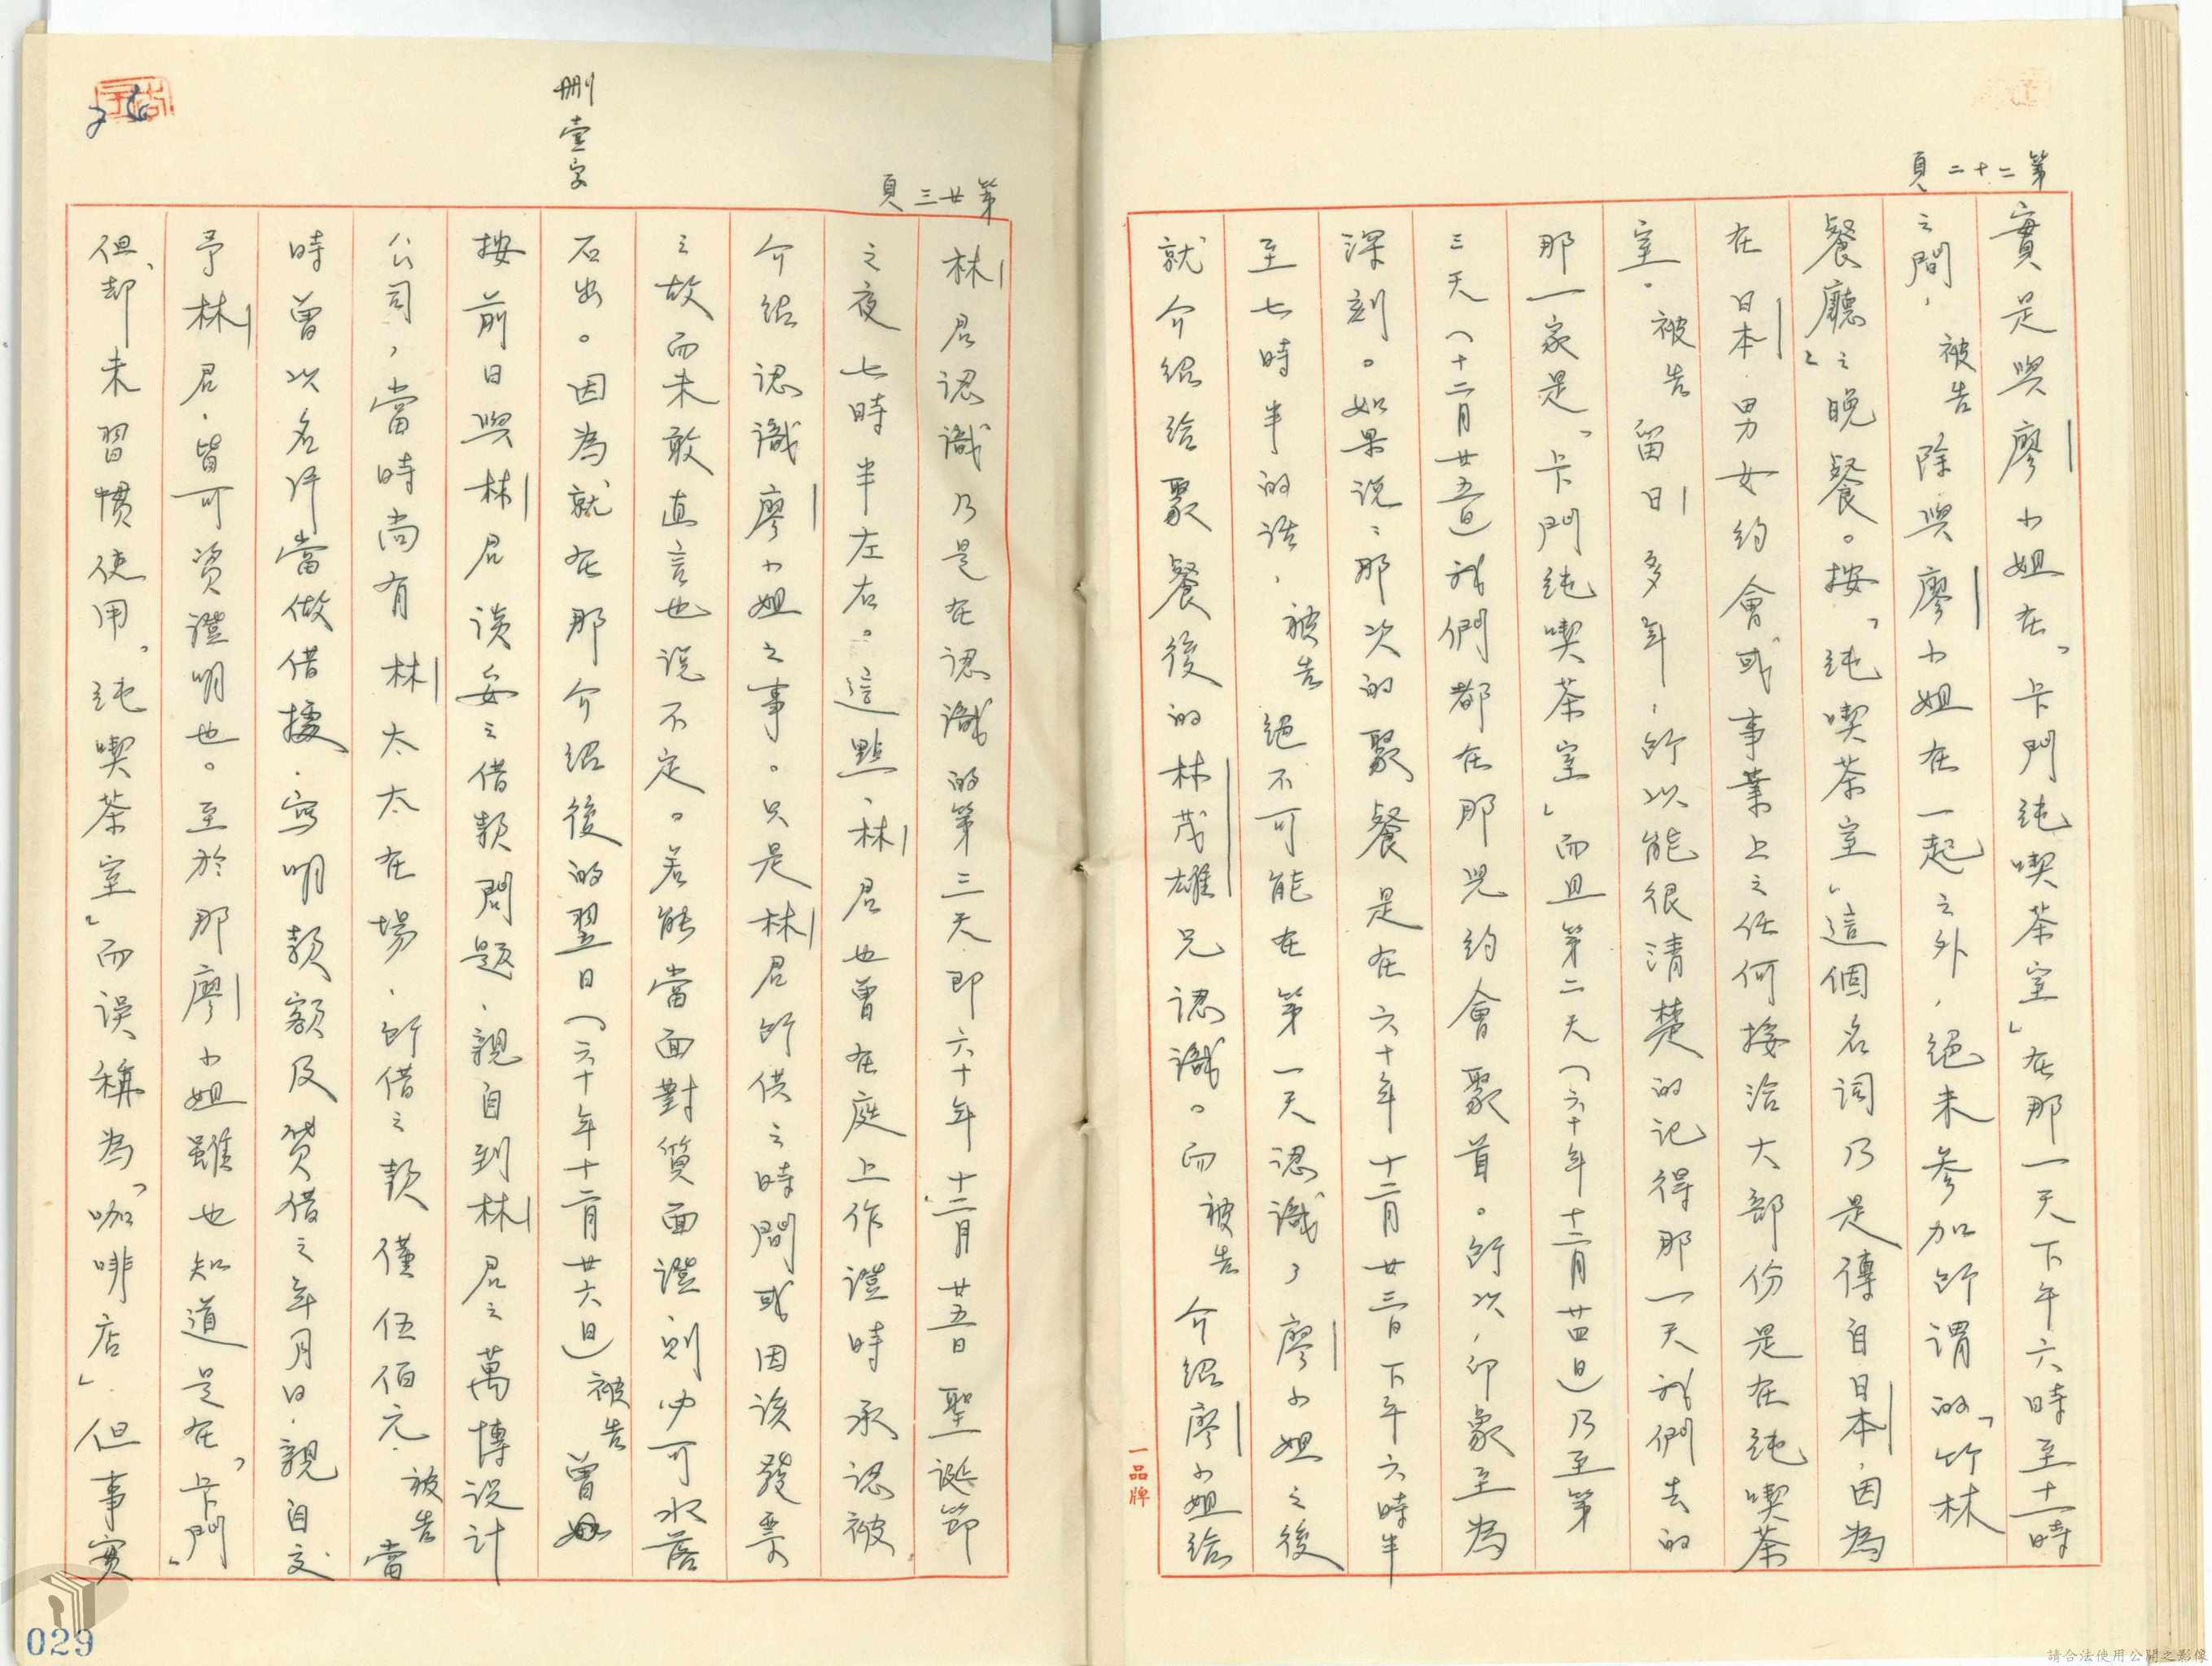 第二十二頁
實是與廖小姐在「卡門純喫茶室」在那一天下午六時至十一時
之間，被告除與廖小姐在一起之外，絕未參加所謂的「竹林
餐廳」之晚餐。按「純喫茶室」這個名詞乃是傳自日本，因為
在日本，男女約會或事業上之任何接洽大部份是在純喫茶
室。被告留日多年，所以能很清楚的記得那一天我們去的
那一家是「卡門純喫茶室」而且第二天（六十年十二月廿四日）乃至第
三天（十二月廿五日）我們都在那兒約會聚首。所以，印象至為
深刻。如果說：那次的聚餐是在六十年十二月廿三日下午六時半
至七時半的話，被告絕不可能在第一天認識了廖小姐之後
就介紹給聚餐後的林茂雄兄認識。而被告介紹廖小姐給
一品牌
第廿三頁
林君認識乃是在認識的第三天，即六十年十二月廿五日聖誕節
之夜七時半左右。這點，林君也曾在庭上作證時承認被
介紹認識廖小姐之事。只是林君所供之時間或因該發票
之故而未敢直言也說不定。若能當面對質面證則必可水落
石出。因為就在那介紹後的翌日（六十年十二月廿六日）被告曾
刪壹字
按前日與林君談妥之借款問題，親自到林君之萬博設計
公司，當時尚有林太太在場，所借之款僅伍佰元，被告當
時曾以名片當做借據，寫明款額及貸借之年月日，親自交
予林君，皆可資證明也。至於那廖小姐雖也知道是在「卡門」
但，却未習慣使用「純喫茶室」而誤稱為「咖啡店」，但事實
029
請合法使用公開之影像